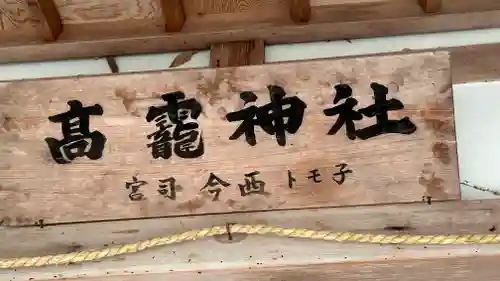 高龗神社
宮司 今西トモ子